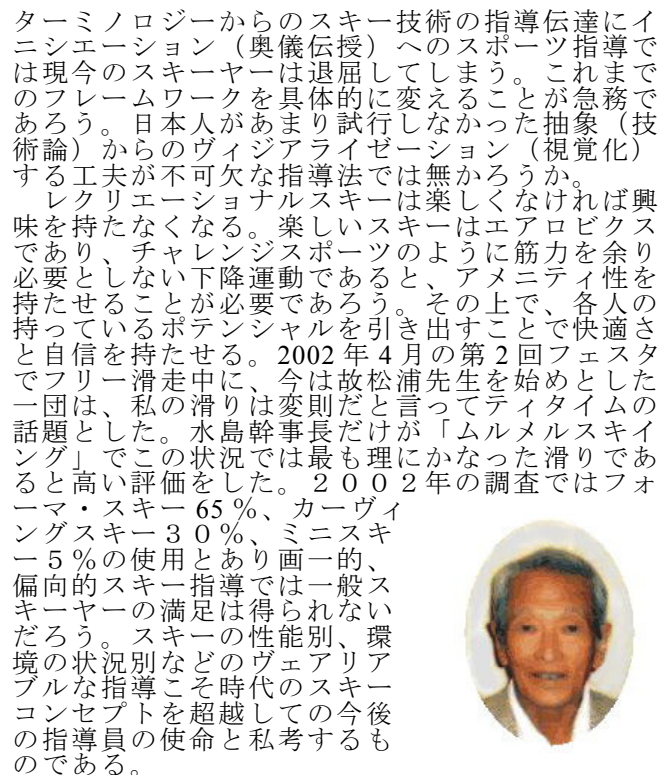 ターミノロジーからのスキー技術の指導伝達にイ
ニシエーション（奥儀伝授）へのスポーツ指導で
は現今のスキーヤーは退屈してしまう。これまで
のフレームワークを具体的に変えることが急務で
あろう。日本人があまり試行しなかった抽象（技
術論）からのヴィジアライゼーション（視覚化）
する工夫が不可欠な指導法では無かろうか。
　レクリエーショナルスキーは楽しくなければ興
味を持たなくなる。楽しいスキーはエアロビクス
であり、チャレンジスポーツのように筋力を余り
必要としない下降運動であると、アメニティ性を
持たせることが必要であろう。その上で、各人の
持っているポテンシャルを引き出すことで快適さ
と自信を持たせる。2002 年 4 月の第 2 回フェスタ
でフリー滑走中に、今は故松浦先生を始めとした
一団は、私の滑りは変則だと言ってティタイムの
話題とした。水島幹事長だけが「ムルメルスキイ
ング」でこの状況では最も理にかなった滑りであ
ると高い評価をした。２００２年の調査ではフォ
ーマ・スキー 65 %、カーヴィ
ングスキー３０%、ミニスキ
ー５%の使用とあり画一的、
偏向的スキー指導では一般ス
キーヤーの満足は得られない
だろう。スキーの性能別、環
境の状況別などのヴェアリア
ブルな指導こそ時代のスキー
コンセプトを超越しての今後
の指導員の使命と私考するも
のである。